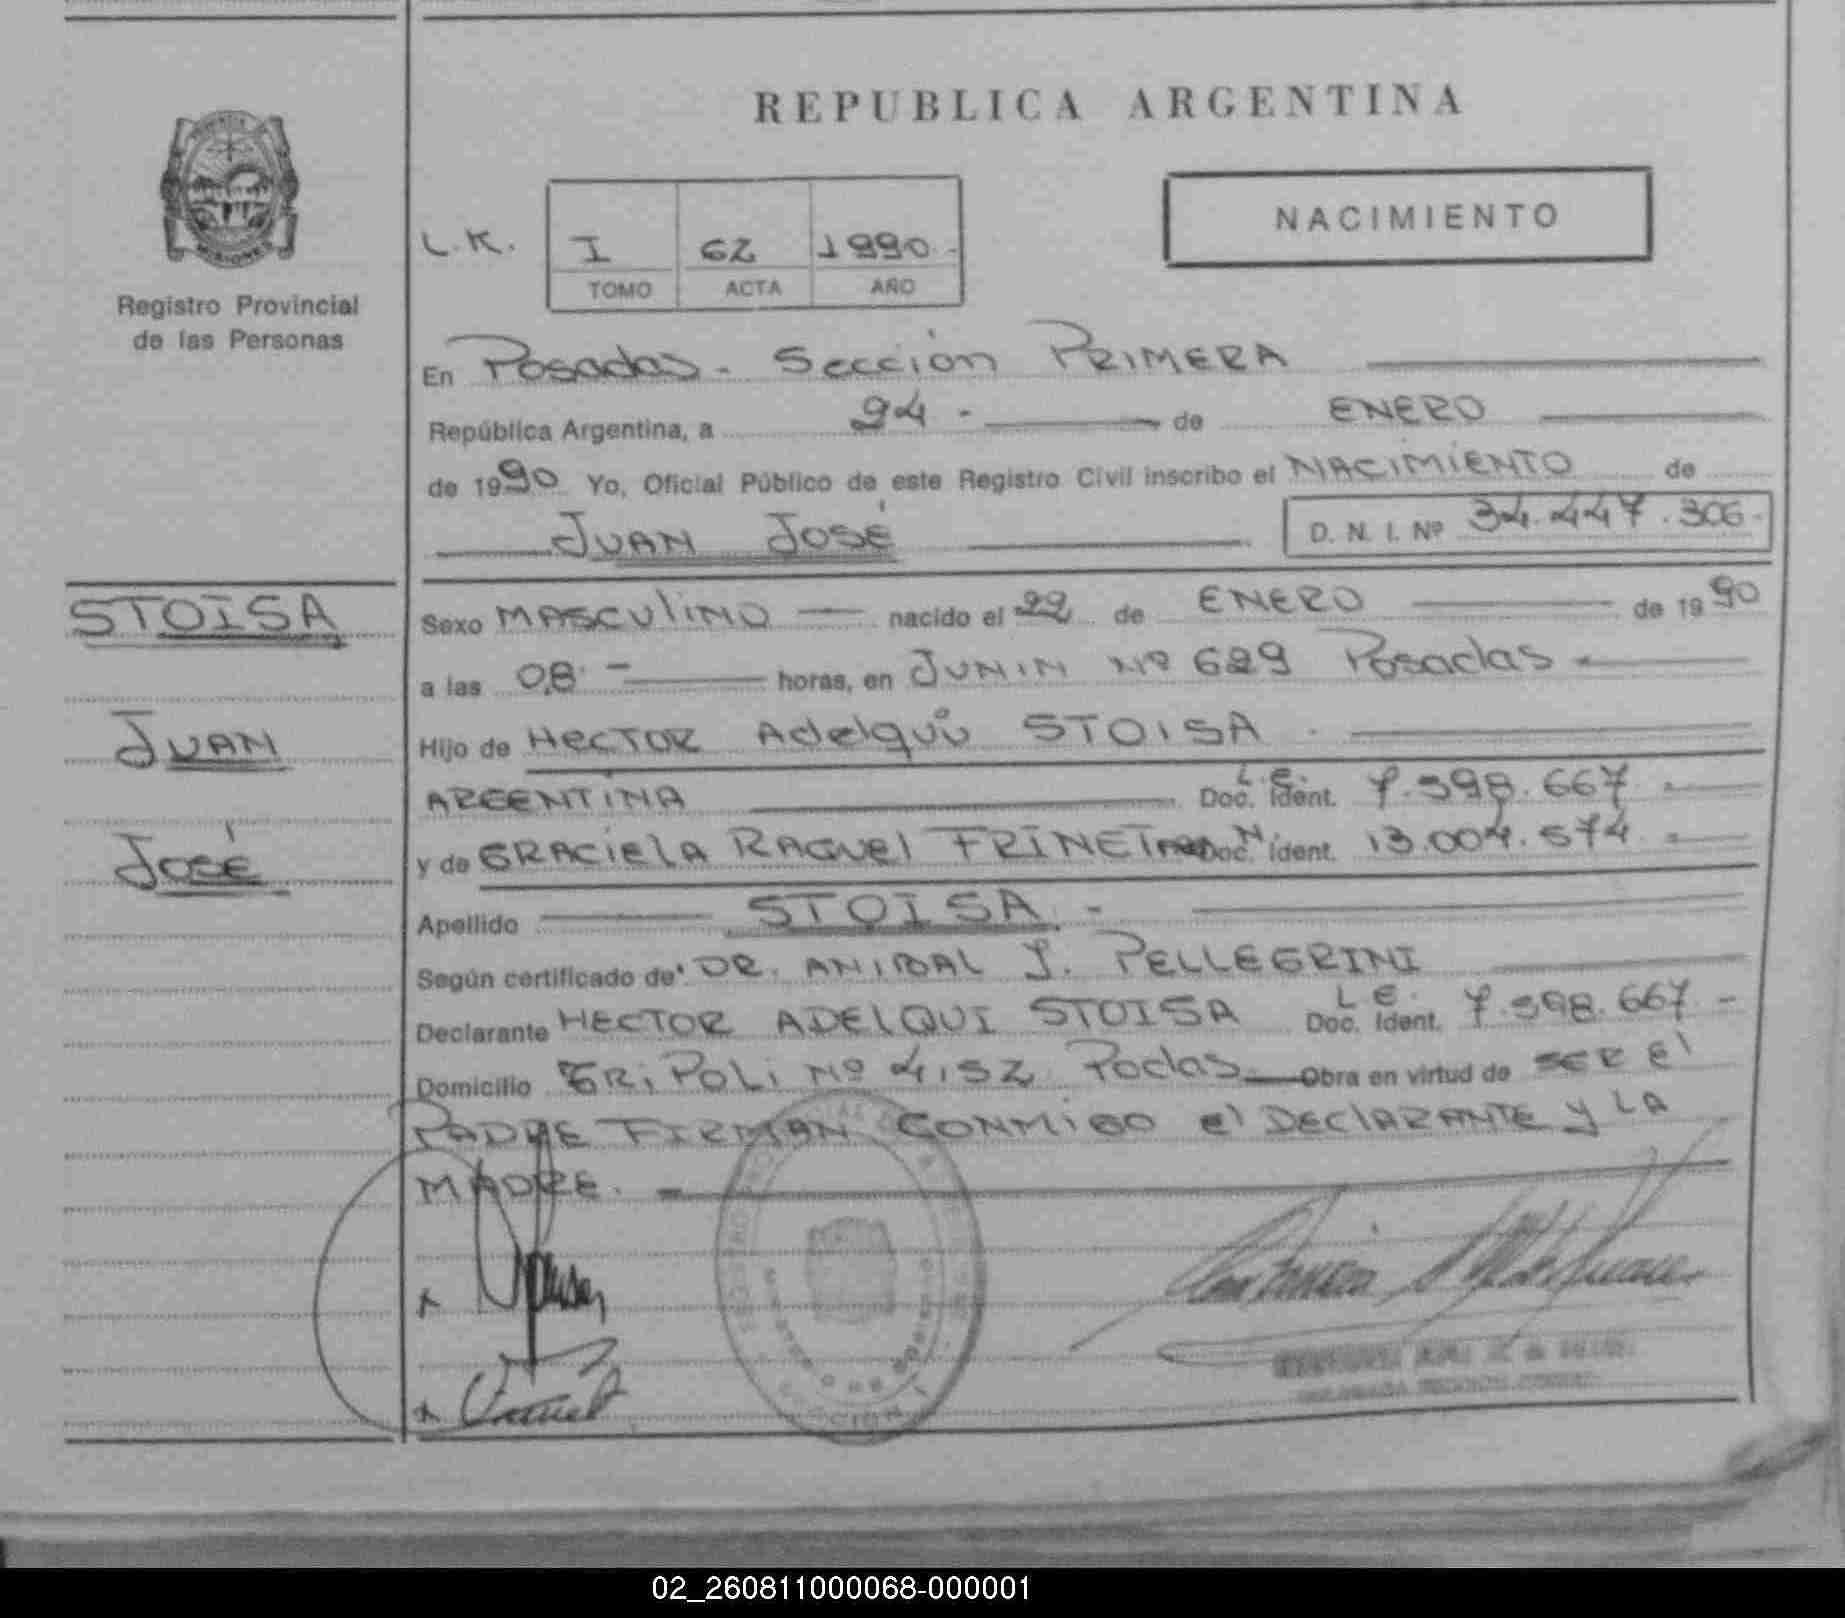 REPUBLICA ARGENTINA
NACIMIENTO
L.K. I 62 1990.-
TOMO ACTA AÑO
Registro Provincial
de las Personas
En Posadas - Sección PRIMERA
República Argentina, a 24 - de ENERO
de 1990 Yo, Oficial Público de este Registro Civil inscribo el NACIMIENTO de
JUAN JOSÉ D. N. I. Nº 34.447.306-
STOISA
JUAN
JOSÉ
Sexo MASCULINO nacido el 22 de ENERO de 1990
a las 08.- horas, en JUNIN Nº 629 Posadas -
Hijo de HECTOR Adelqui STOISA
ARGENTINA L.E. Doc. Ident. 7.598.667 -
y de GRACIELA RAQUEL Doc. Ident. 13.004.574 -
Apellido STOISA -
Según certificado de DR. ANIBAL J. PELLEGRINI
Declarante HECTOR ADELQUI STOISA L E. Doc. Ident. 7.598.667 -
Domicilio TRIPOLI Nº 4152 Podas Obra en virtud de SER El
PADRE FIRMAN CONMIGO el DECLARANTE y LA
MADRE. -
02_260811000068-000001